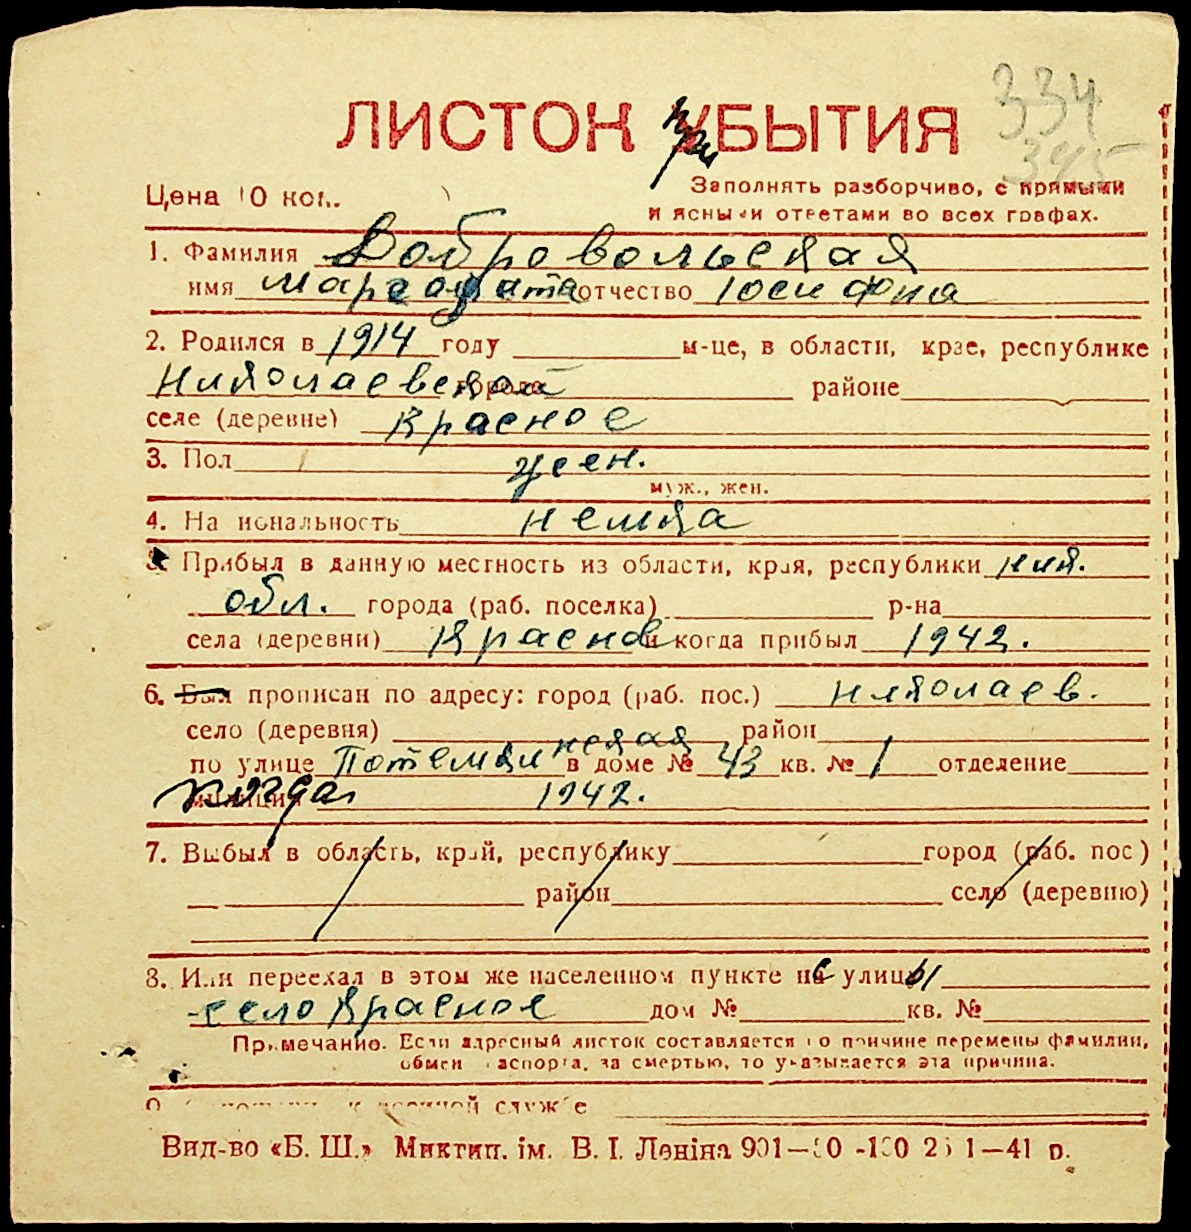 334
345
ЛИСТОК при УБЫТИЯ
Цена 10 коп.
Заполнять разборчиво, с прямыми
и ясными ответами во всех графах.
1. Фамилия Добровольская
имя Маргарита отчество Юсифна
2. Родился в 1914 году м-це, в области, крае, республике
Николаевской городе районе
селе (деревне) Красное
3. Пол жен.
муж., жен.
4. Национальность немка
5. Прибыл в данную местность из области, края, республики ник.
обл. города (раб. поселка) р-на
села (деревни) Красное и когда прибыл 1942.
6. Был прописан по адресу: город (раб. пос.) Николаев.
село (деревня) район
по улице Потемкинская в доме № 43 кв. № 1 отделение
милиции когда 1942.
7. Выбыл в область, край, республику город (раб. пос)
район село (деревню)
8. Или переехал в этом же населенном пункте с улицы
село Красное дом № кв. №
Примечание. Если адресный листок составляется по причине перемены фамилии,
обмен паспорта, за смертью, то указывается эта причина.
к военной службе
Вид-во «Б. Ш.» Миктип. ім. В. І. Леніна 901—
1—41 р.